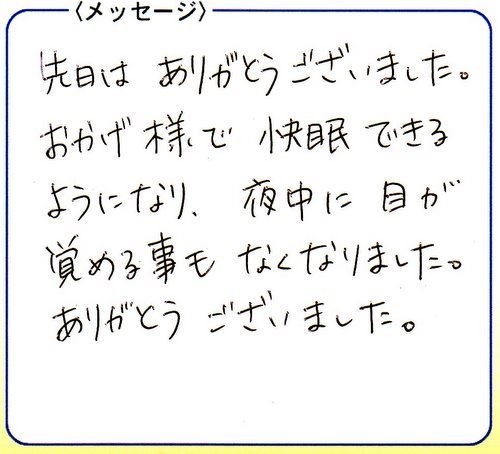 〈メッセージ〉
先日は ありがとうございました。
おかげ様で 快眠できる
ようになり、夜中に 目が
覚める事も なくなりました。
ありがとう ございました。